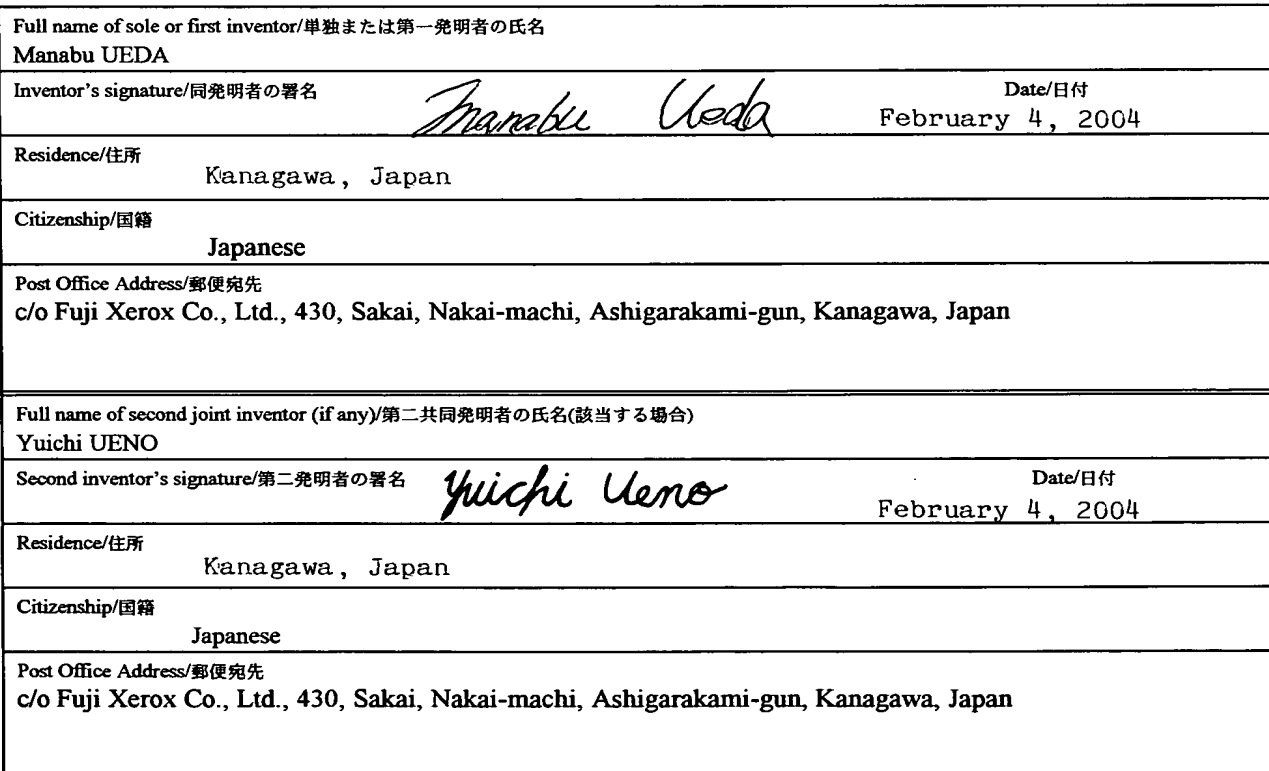 Full name of sole or first inventor/単独または第一発明者の氏名
Manabu UEDA
Inventor's signature/同発明者の署名 Manabu Ueda Date/日付
February 4, 2004
Residence/住所
Kanagawa, Japan
Citizenship/国籍
Japanese
Post Office Address/郵便宛先
c/o Fuji Xerox Co., Ltd., 430, Sakai, Nakai-machi, Ashigarakami-gun, Kanagawa, Japan
Full name of second joint inventor (if any)/第二共同発明者の氏名(該当する場合)
Yuichi UENO
Second inventor's signature/第二発明者の署名 Yuichi Ueno Date/日付
February 4, 2004
Residence/住所
Kanagawa, Japan
Citizenship/国籍
Japanese
Post Office Address/郵便宛先
c/o Fuji Xerox Co., Ltd., 430, Sakai, Nakai-machi, Ashigarakami-gun, Kanagawa, Japan